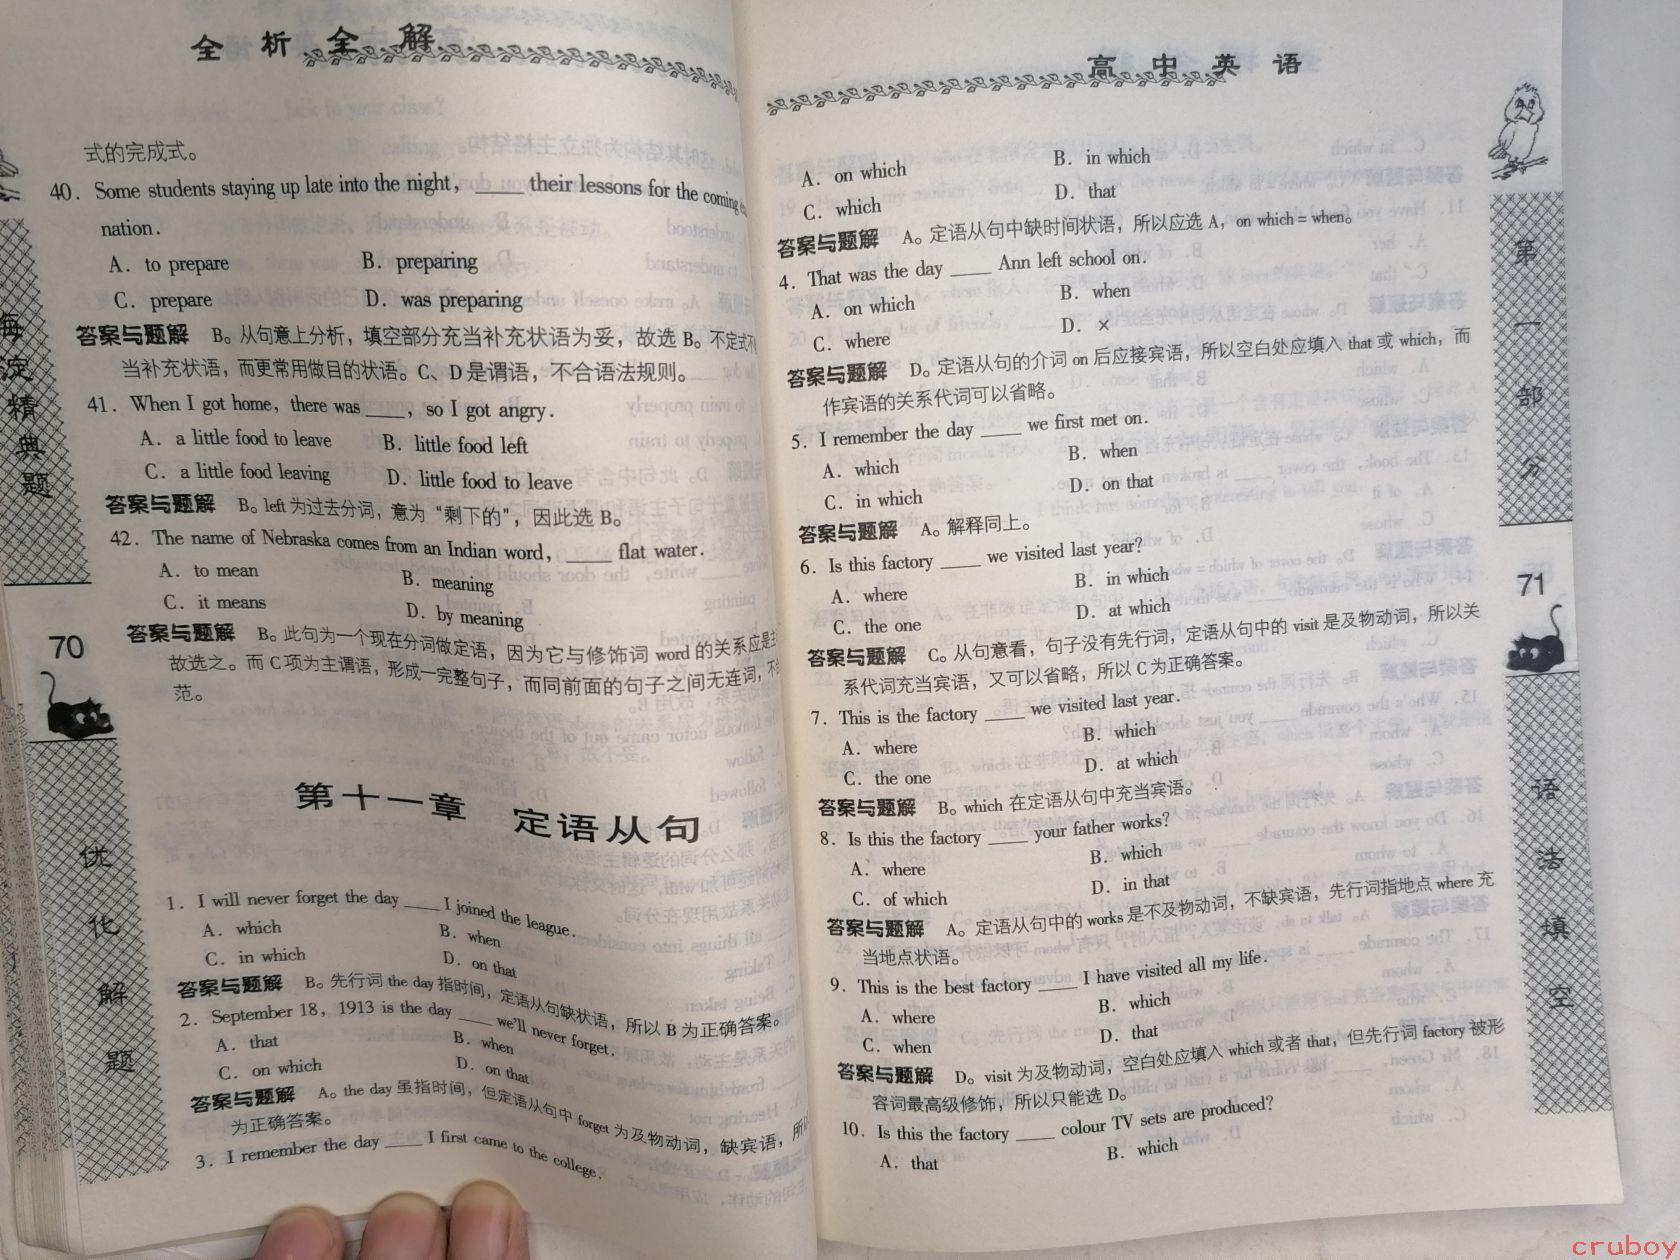 全析全解
式的完成式。
40. Some students staying up late into the night, ____ their lessons for the coming
nation.
A. to prepare B. preparing
C. prepare D. was preparing
答案与题解 B。从句意上分析，填空部分充当补充状语为妥，故选 B。不定式
当补充状语，而更常用做目的状语。C、D是谓语，不合语法规则。
41. When I got home, there was ____, so I got angry.
A. a little food to leave B. little food left
C. a little food leaving D. little food to leave
答案与题解 B。left 为过去分词，意为“剩下的”，因此选 B。
42. The name of Nebraska comes from an Indian word, ____ flat water.
A. to mean B. meaning
C. it means D. by meaning
答案与题解 B。此句为一个现在分词做定语，因为它与修饰词 word 的关系应是主
故选之。而 C 项为主谓语，形成一完整句子，而同前面的句子之间无连词，不
范。
第十一章 定语从句
1. I will never forget the day ____ I joined the league.
A. which B. when
C. in which D. on that
答案与题解 B。先行词 the day 指时间，定语从句缺状语，所以 B 为正确答案。
2. September 18, 1913 is the day ____ we'll never forget.
A. that B. when
C. on which D. on that
答案与题解 A。the day 虽指时间，但定语从句中 forget 为及物动词，缺宾语，所以
为正确答案。
3. I remember the day ____ I first came to the college.
海淀精典题
70
优化解题
高中英语
A. on which B. in which
C. which D. that
答案与题解 A。定语从句中缺时间状语，所以应选 A，on which = when。
4. That was the day ____ Ann left school on.
A. on which B. when
C. where D. ×
答案与题解 D。定语从句的介词 on 后应接宾语，所以空白处应填入 that 或 which，而
作宾语的关系代词可以省略。
5. I remember the day ____ we first met on.
A. which B. when
C. in which D. on that
答案与题解 A。解释同上。
6. Is this factory ____ we visited last year?
A. where B. in which
C. the one D. at which
答案与题解 C。从句意看，句子没有先行词，定语从句中的 visit 是及物动词，所以关
系代词充当宾语，又可以省略，所以 C 为正确答案。
7. This is the factory ____ we visited last year.
A. where B. which
C. the one D. at which
答案与题解 B。which 在定语从句中充当宾语。
8. Is this the factory ____ your father works?
A. where B. which
C. of which D. in that
答案与题解 A。定语从句中的 works 是不及物动词，不缺宾语，先行词指地点 where 充
当地点状语。
9. This is the best factory ____ I have visited all my life.
A. where B. which
C. when D. that
答案与题解 D。visit 为及物动词，空白处应填入 which 或者 that，但先行词 factory 被形
容词最高级修饰，所以只能选 D。
10. Is this the factory ____ colour TV sets are produced?
A. that B. which
第一部分
71
语法填空
cruboy